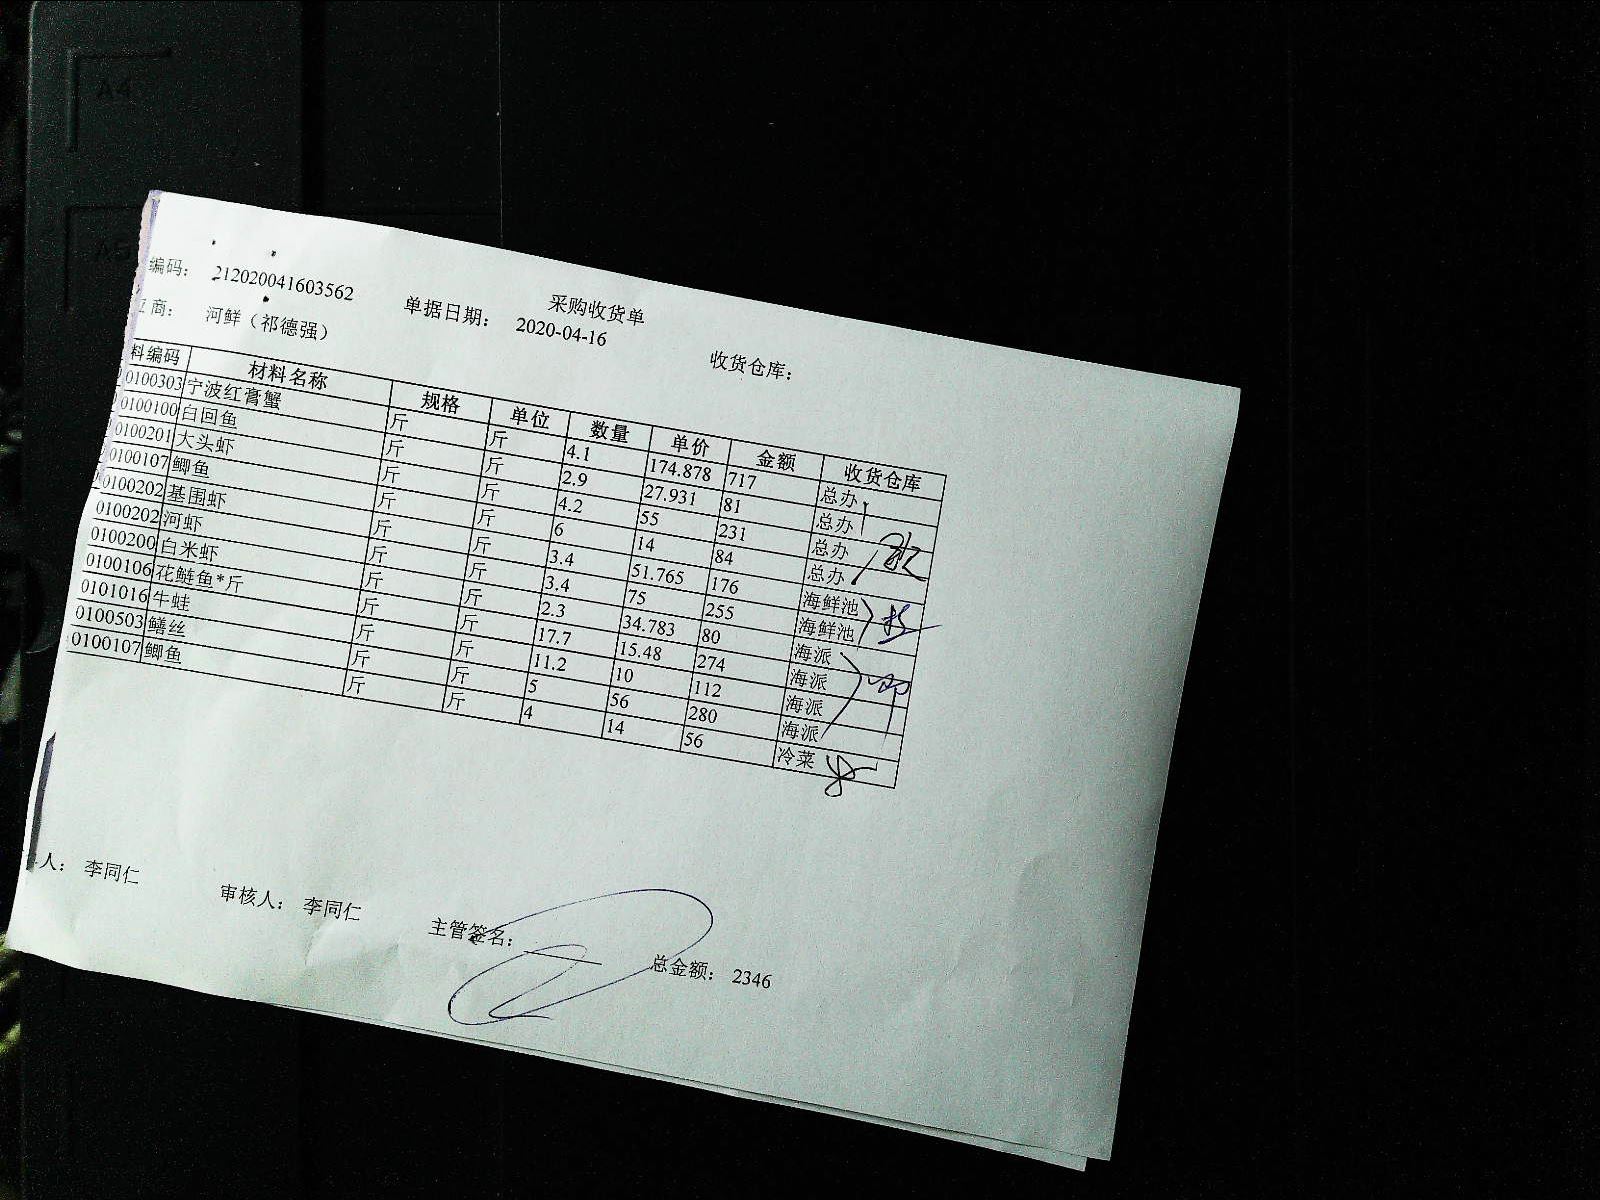 A4
A5
采购收货单
编码： 212020041603562 单据日期： 2020-04-16 收货仓库：
商： 河鲜（祁德强）
料编码 材料名称 规格 单位 数量 单价 金额 收货仓库
0100303 宁波红膏蟹 斤 斤 4.1 174.878 717 总办
0100100 白回鱼 斤 斤 2.9 27.931 81 总办
0100201 大头虾 斤 斤 4.2 55 231 总办
0100107 鲫鱼 斤 斤 6 14 84 总办
0100202 基围虾 斤 斤 3.4 51.765 176 海鲜池
0100202 河虾 斤 斤 3.4 75 255 海鲜池
0100200 白米虾 斤 斤 2.3 34.783 80 海派
0100106 花鲢鱼*斤 斤 斤 17.7 15.48 274 海派
0101016 牛蛙 斤 斤 11.2 10 112 海派
0100503 鳝丝 斤 斤 5 56 280 海派
0100107 鲫鱼 斤 斤 4 14 56 冷菜
人： 李同仁 审核人： 李同仁 主管签名： 总金额： 2346